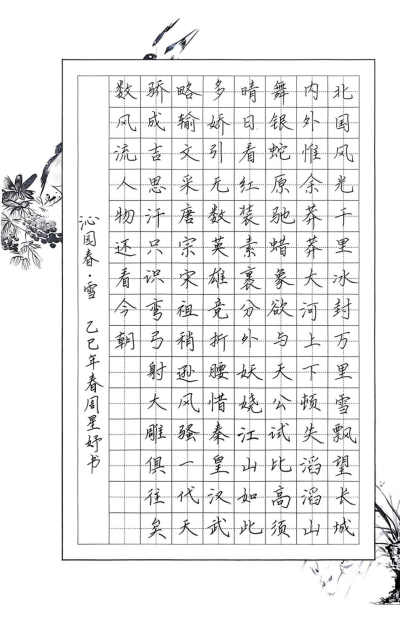 北国风光千里冰封万里雪飘望长城
内外惟余莽莽大河上下顿失滔滔山
舞银蛇原驰蜡象欲与天公试比高须
晴日看红装素裹分外妖娆江山如此
多娇引无数英雄竞折腰惜秦皇汉武
略输文采唐宗宋祖稍逊风骚一代天
骄成吉思汗只识弯弓射大雕俱往矣
数风流人物还看今朝
沁园春·雪 乙巳年春周星妤书